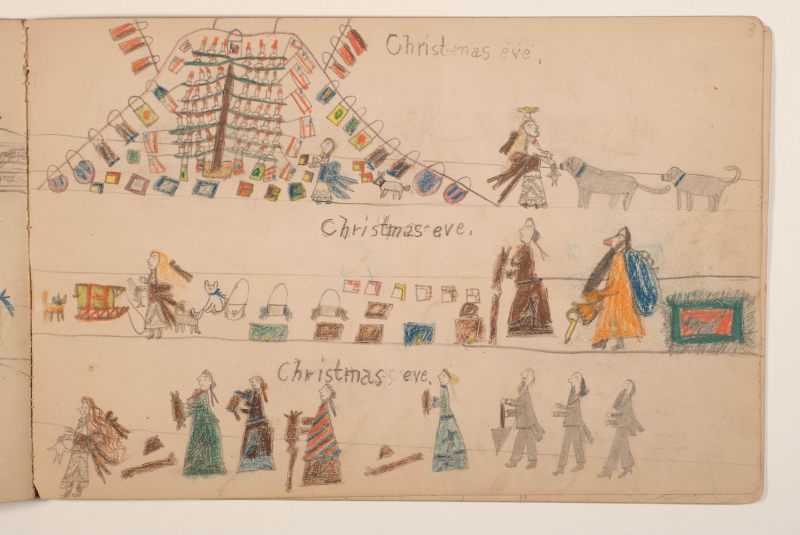 Christmas eve.
Christmas eve.
Christmas eve.